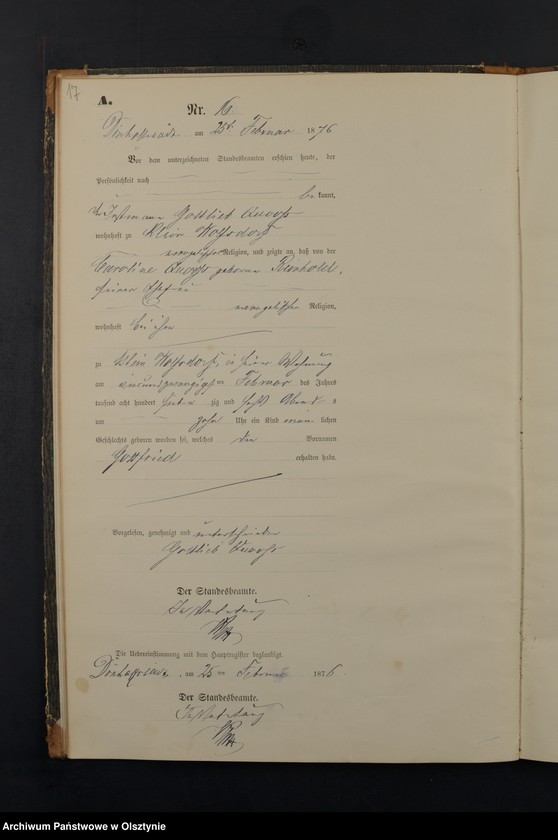 17
A.
Nr. 16.
am 25t Februar 1876
Vor dem unterzeichneten Standesbeamten erschien heute, der
Persönlichkeit nach
be kannt,
der Gottlieb
wohnhaft zu Klein
evangelischer Religion, und zeigte an, daß von der
Caroline geborene Reinhold,
seiner Ehefrau
evangelischer Religion,
wohnhaft bei ihm
zu Klein in seiner Wohnung
am einundzwanzigsten Februar des Jahres
tausend acht hundert sieben zig und sechs Abends
um zehn Uhr ein Kind männ lichen
Geschlechts geboren worden sei, welches den Vornamen
Gottfried
erhalten habe.
Vorgelesen, genehmigt und unterschrieben
Gottlieb
Der Standesbeamte.
In Vertretung
Die Uebereinstimmung mit dem Hauptregister beglaubigt.
am 25 ten Februar 1876.
Der Standesbeamte.
In Vertretung
Archiwum Państwowe w Olsztynie